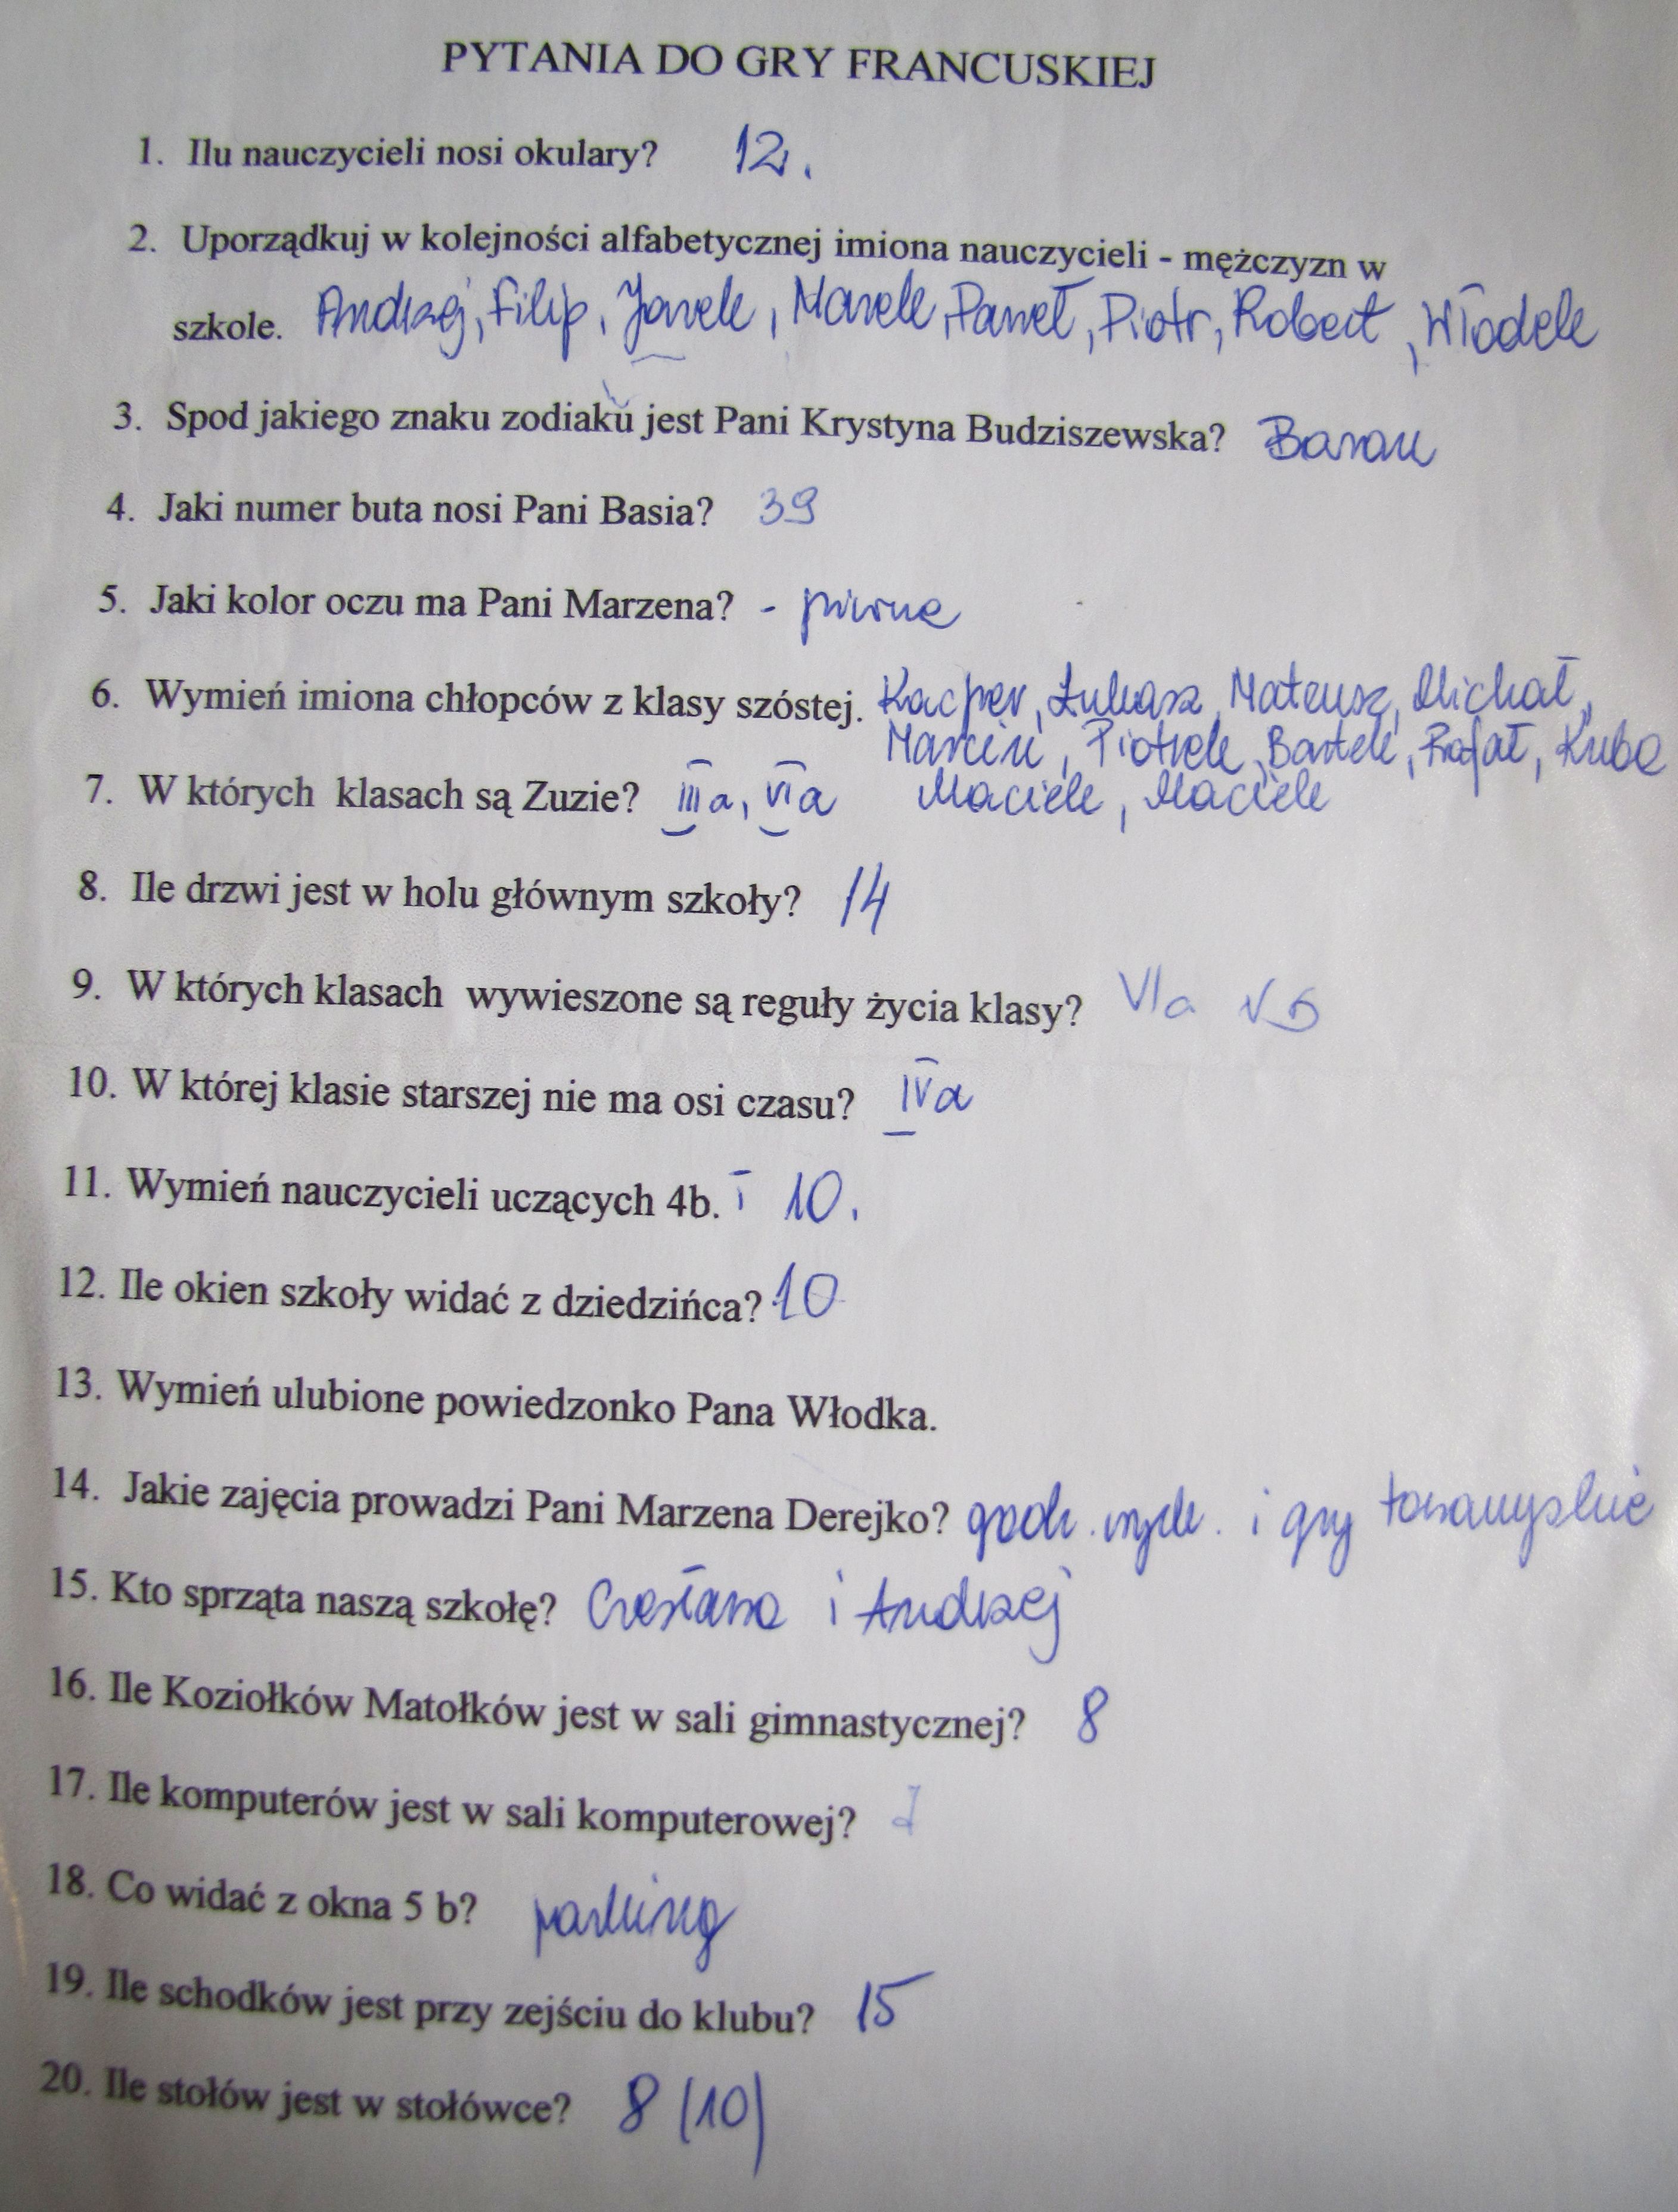 PYTANIA DO GRY FRANCUSKIEJ
1. Ilu nauczycieli nosi okulary? 12.
2. Uporządkuj w kolejności alfabetycznej imiona nauczycieli - mężczyzn w
szkole. Andrzej, Filip, Jarek, Marek, Paweł, Piotr, Robert, Włodek
3. Spod jakiego znaku zodiaku jest Pani Krystyna Budziszewska? Baran
4. Jaki numer buta nosi Pani Basia? 39
5. Jaki kolor oczu ma Pani Marzena? - piwne
6. Wymień imiona chłopców z klasy szóstej. Kacper, Łukasz, Mateusz, Michał,
Marcin, Piotrek, Bartek, Rafał, Kuba
7. W których klasach są Zuzie? III a, VI a Maciek, Maciek
8. Ile drzwi jest w holu głównym szkoły? 14
9. W których klasach wywieszone są reguły życia klasy? VIa V b
10. W której klasie starszej nie ma osi czasu? IVa
11. Wymień nauczycieli uczących 4b. 10.
12. Ile okien szkoły widać z dziedzińca? 10
13. Wymień ulubione powiedzonko Pana Włodka.
14. Jakie zajęcia prowadzi Pani Marzena Derejko? godz. wych. i gry towarzyskie
15. Kto sprząta naszą szkołę? Czesława i Andrzej
16. Ile Koziołków Matołków jest w sali gimnastycznej? 8
17. Ile komputerów jest w sali komputerowej?
18. Co widać z okna 5 b? parking
19. Ile schodków jest przy zejściu do klubu? 15
20. Ile stołów jest w stołówce? 8 (10)